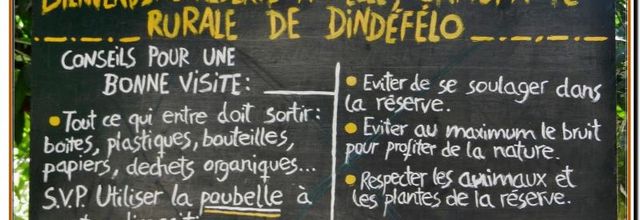 RURALE DE DINDÉFÉLO
CONSEILS POUR UNE
BONNE VISITE:
• Tout ce qui entre doit sortir:
boîtes, plastiques, bouteilles,
papiers, dechets organiques...
S.V.P. Utiliser la poubelle à
• Eviter de se soulager dans
la réserve.
• Eviter au maximum le bruit
pour profiter de la nature.
• Respecter les animaux et
les plantes de la réserve.